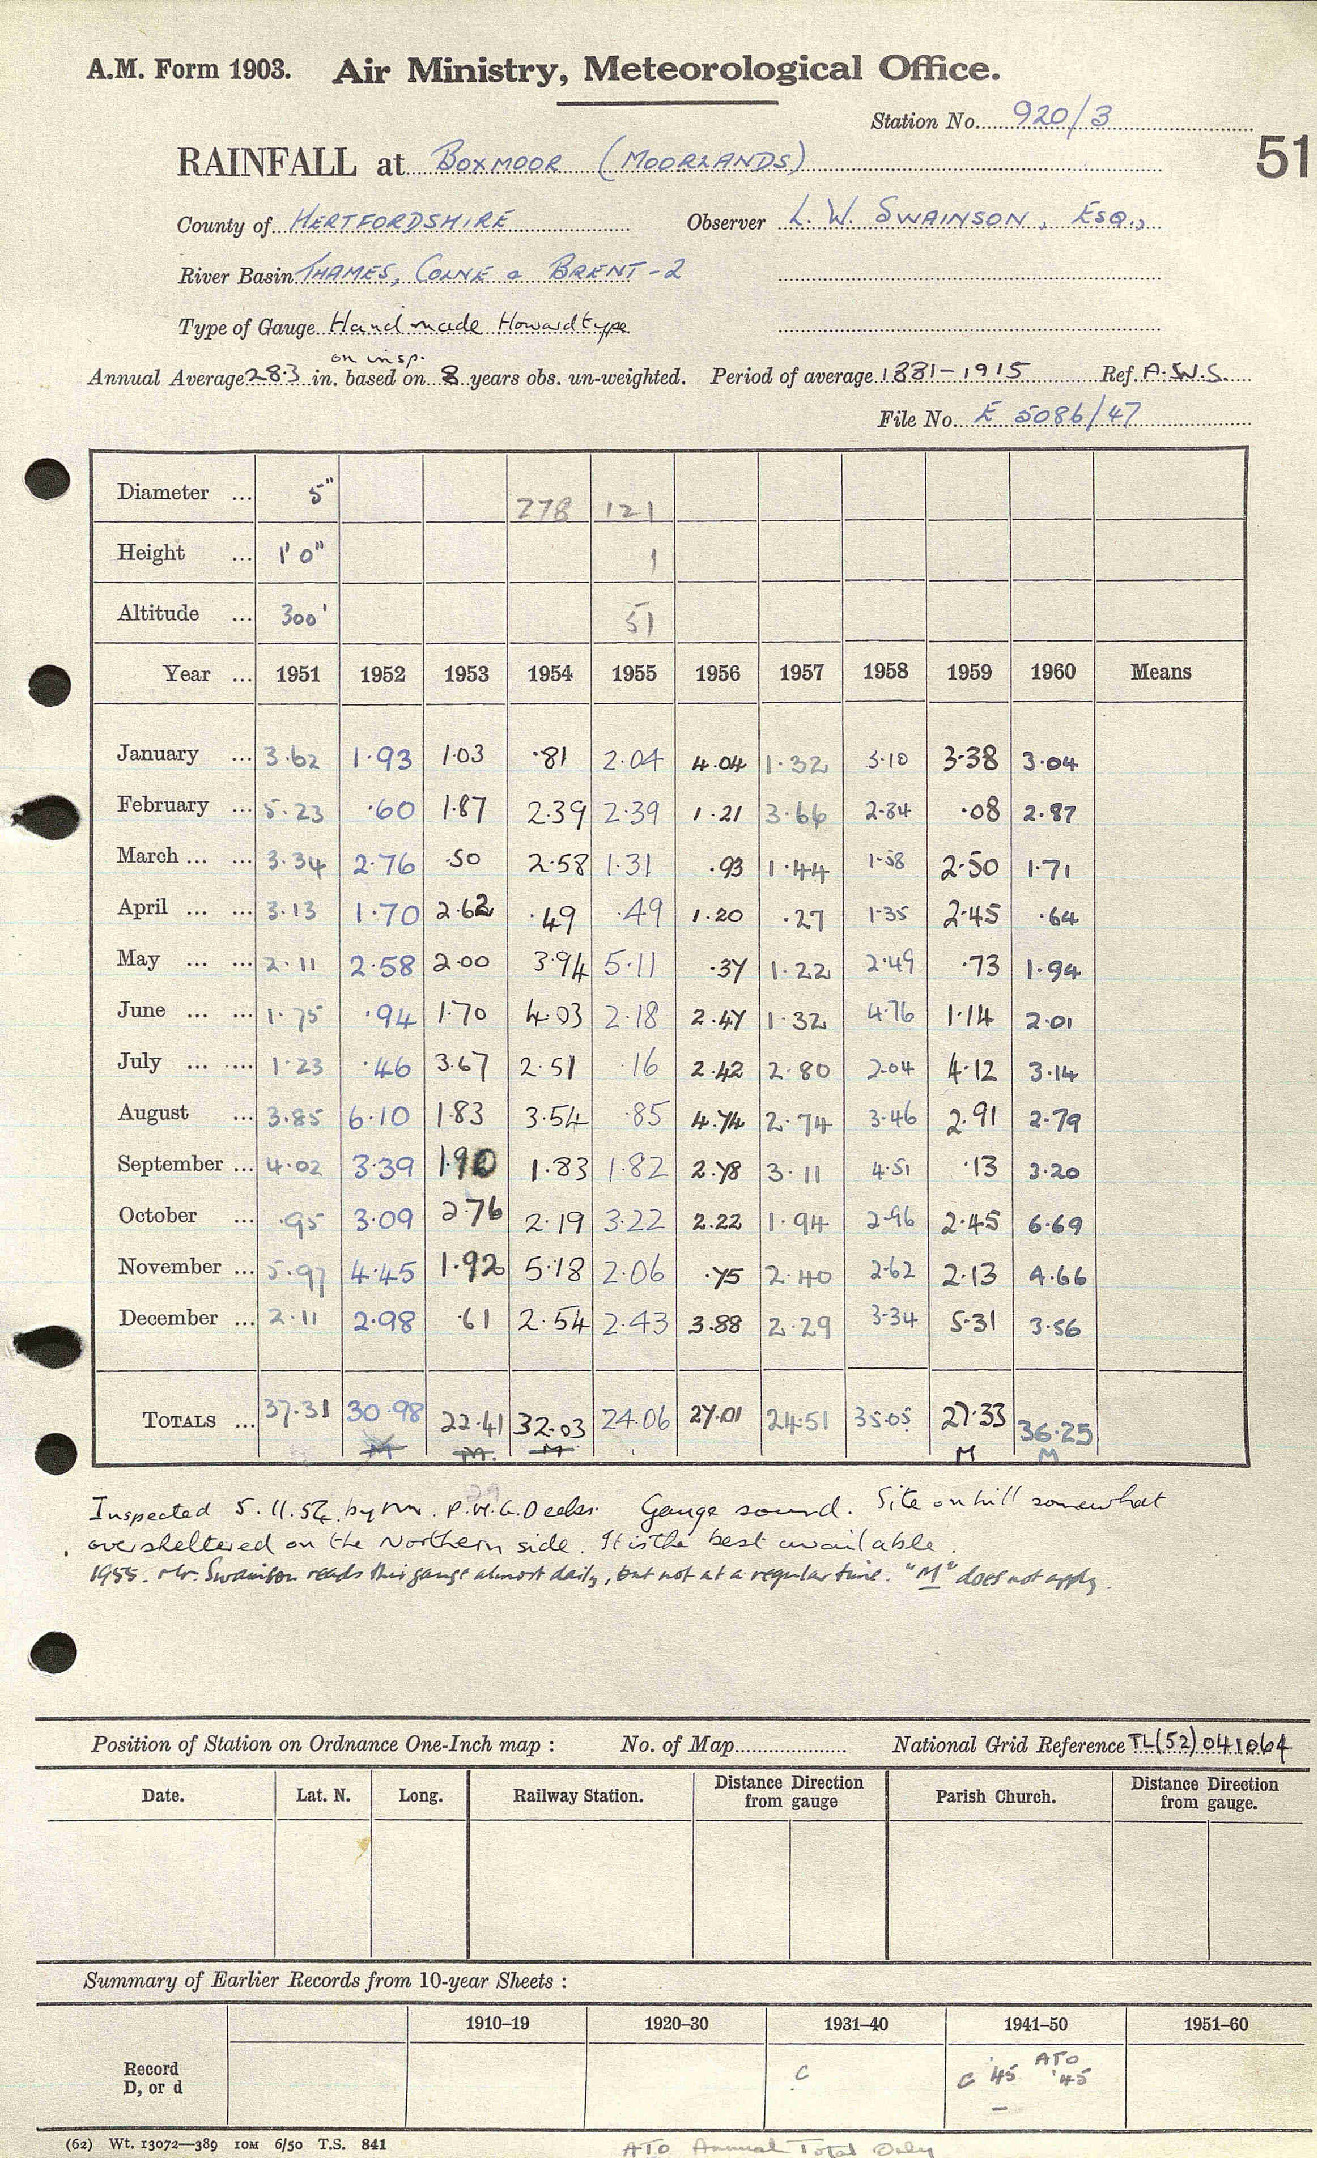 A.M. Form 1903. Air Ministry, Meteorological Office.
Station No. 920/3
51
RAINFALL at BOXMOOR (MOORLANDS)
County of HERTFORDSHIRE Observer L. W. SWAINSON, ESQ.,
River Basin THAMES, COLNE & BRENT-2
Type of Gauge Hand made Howard type
on insp.
Annual Average 28.3 in. based on 8 years obs. un-weighted. Period of average 1881-1915 Ref. A.W.S.
File No. E 5086/47
Diameter ... 5" 278 121
Height ... 1' 0" 1
Altitude ... 300' 51
Year ... 1951 1952 1953 1954 1955 1956 1957 1958 1959 1960 Means
January ... 3.62 1.93 1.03 .81 2.04 4.04 1.32 3.10 3.38 3.04
February ... 5.23 .60 1.87 2.39 2.39 1.21 3.66 2.84 .08 2.87
March ... ... 3.34 2.76 .50 2.58 1.31 .93 1.44 1.58 2.50 1.71
April ... ... 3.13 1.70 2.62 .49 .49 1.20 .27 1.35 2.45 .64
May ... ... 2.11 2.58 2.00 3.94 5.11 .37 1.22 2.49 .73 1.94
June ... ... 1.75 .94 1.70 4.03 2.18 2.47 1.32 4.76 1.14 2.01
July ... ... 1.23 .46 3.67 2.51 .16 2.42 2.80 2.04 4.12 3.14
August ... 3.85 6.10 1.83 3.54 .85 4.74 2.74 3.46 2.91 2.79
September ... 4.02 3.39 1.90 1.83 1.82 2.78 3.11 4.51 .13 3.20
October ... .95 3.09 2.76 2.19 3.22 2.22 1.94 2.96 2.45 6.69
November ... 5.97 4.45 1.92 5.18 2.06 .75 2.40 2.62 2.13 4.66
December ... 2.11 2.98 .61 2.54 2.43 3.88 2.29 3.34 5.31 3.56
TOTALS ... 37.31 30.98 22.41 32.03 24.06 27.01 24.51 35.05 27.33 36.25
M M. M M M
Inspected 5.11.54 by Mr. P.H.G. Deeks. Gauge sound. Site on hill somewhat
oversheltered on the Northern side. It is the best available.
1955. Mr. Swainson reads this gauge almost daily, but not at a regular time. "M" does not apply.
Position of Station on Ordnance One-Inch map : No. of Map National Grid Reference TL(52)041064
Date. Lat. N. Long. Railway Station. Distance Direction from gauge Parish Church. Distance Direction from gauge.
Summary of Earlier Records from 10-year Sheets :
1910–19 1920–30 1931–40 1941–50 1951–60
Record D, or d C C '45 ATO '45
–
(62) Wt. 13072—389 10M 6/50 T.S. 841
ATO Annual Total Only